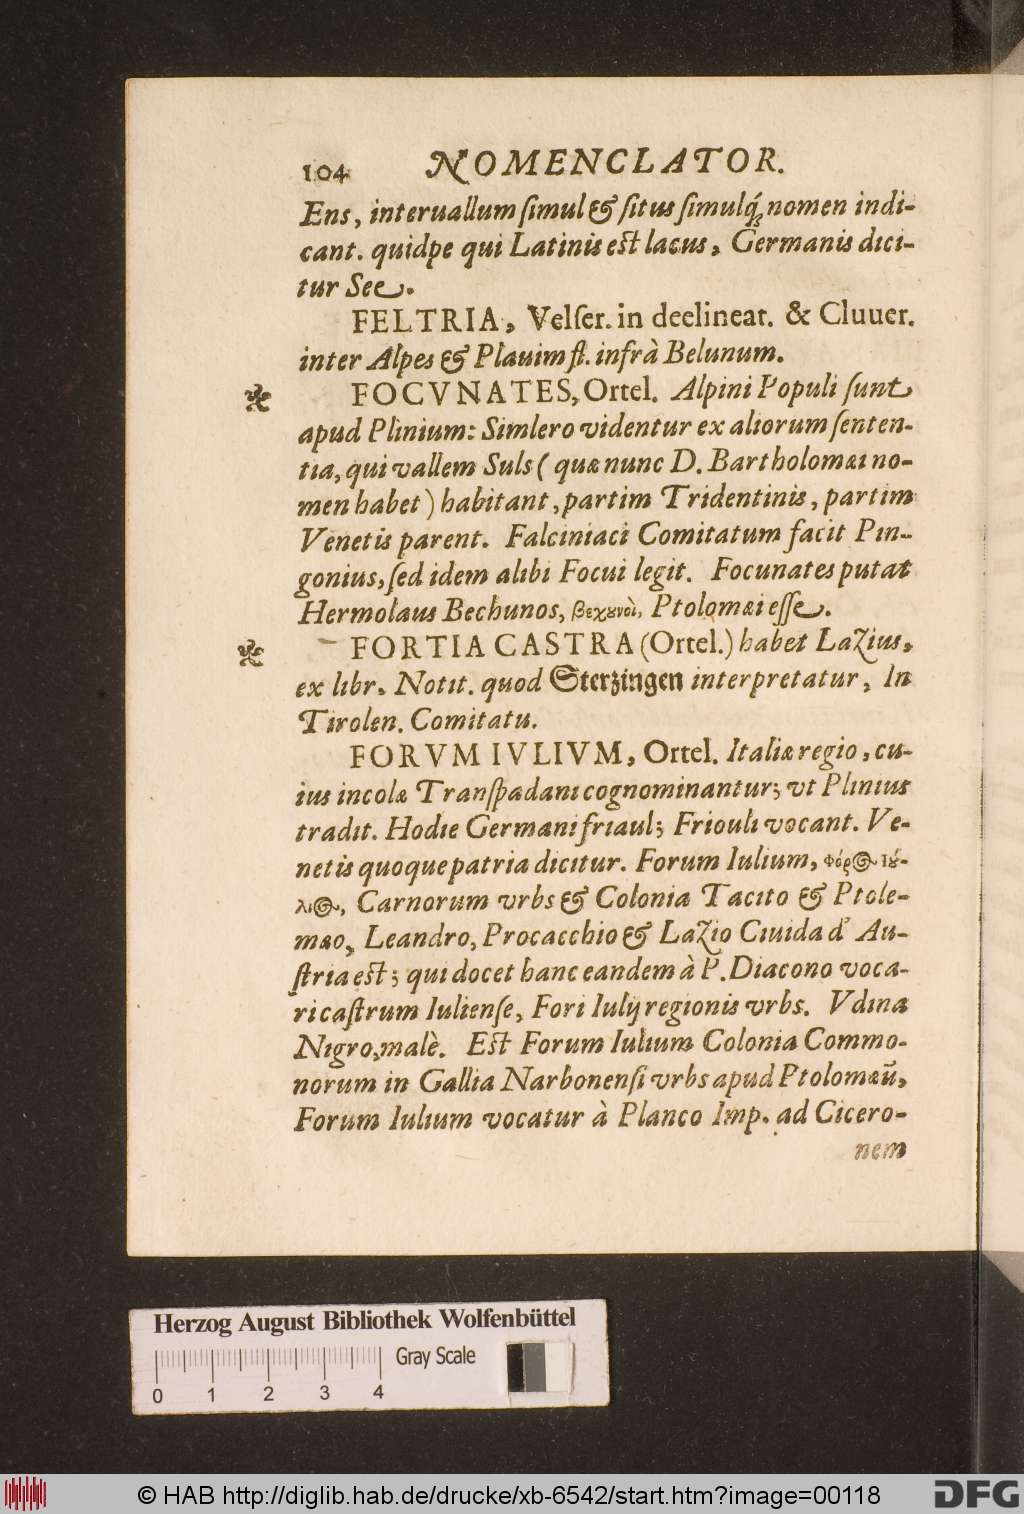 104 NOMENCLATOR.
Ens, interuallum ſimul & ſitus ſimulq́; nomen indi-
cant. quidpe qui Latinis est lacus, Germanis dici-
tur See.
FELTRIA, Velſer. in deelineat. & Cluuer.
inter Alpes & Plauim fl. infrà Belunum.
FOCVNATES, Ortel. Alpini Populi ſunt
apud Plinium: Simlero videntur ex aliorum ſenten-
tia, qui vallem Suls (quæ nunc D. Bartholomæi no-
men habet) habitant, partim Tridentinis, partim
Venetis parent. Falciniaci Comitatum facit Pin-
gonius, ſed idem alibi Focui legit. Focunates putat
Hermolaus Bechunos, βεχουνοὶ, Ptolomæi eſſe.
FORTIA CASTRA (Ortel.) habet Lazius,
ex libr. Notit. quod Sterzingen interpretatur, In
Tirolen. Comitatu.
FORVM IVLIVM, Ortel. Italiæ regio, cu-
ius incolæ Tranſpadani cognominantur; vt Plinius
tradit. Hodie Germani friaul; Friouli vocant. Ve-
netis quoque patria dicitur. Forum Iulium, Φόρος Ιού-
λιος, Carnorum vrbs & Colonia Tacito & Ptole-
mæo, Leandro, Procacchio & Lazio Ciuida d' Au-
ſtria est; qui docet hanc eandem à P. Diacono voca-
ri caſtrum Iulienſe, Fori Iulij regionis vrbs. Vdina
Nigro, malè. Est Forum Iulium Colonia Commo-
norum in Gallia Narbonenſi vrbs apud Ptolomæũ,
Forum Iulium vocatur à Planco Imp. ad Cicero-
nem
Herzog August Bibliothek Wolfenbüttel
Gray Scale
0 1 2 3 4
© HAB http://diglib.hab.de/drucke/xb-6542/start.htm?image=00118 DFG